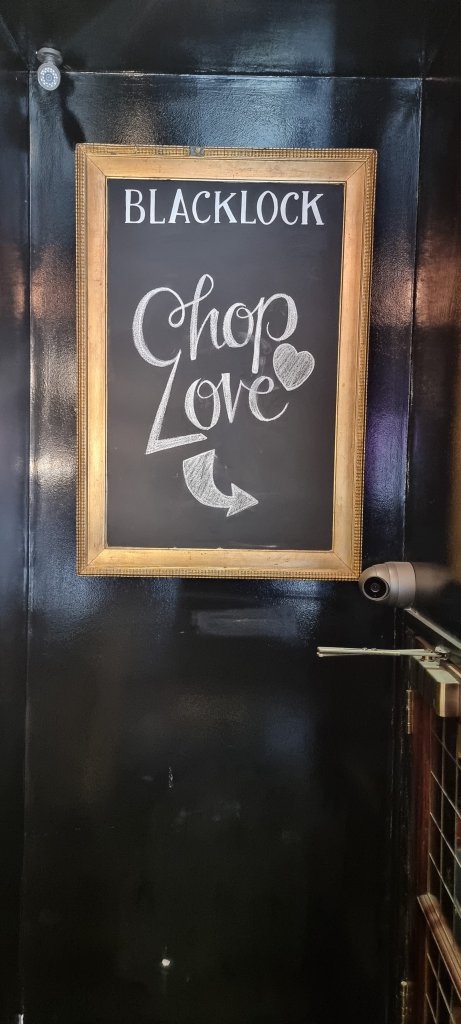 BLACKLOCK
Chop
Love